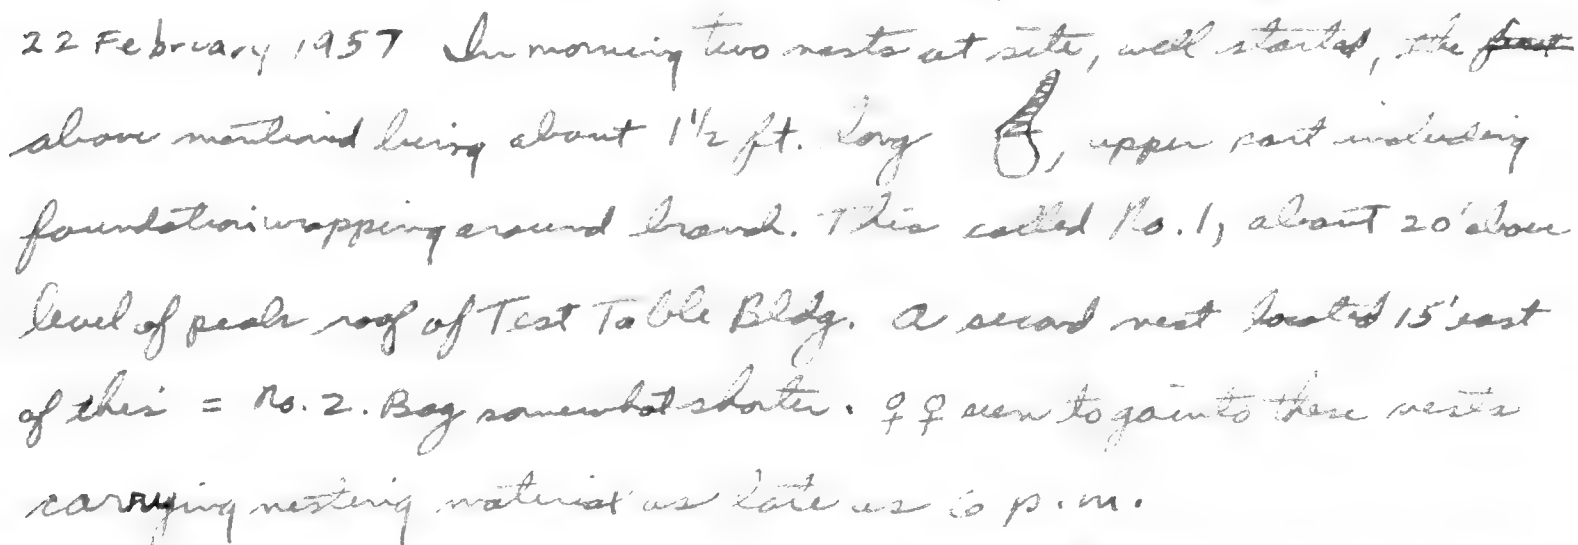 22 February 1957 In morning two nests at site, well started, the first
above mentioned being about 1½ ft. long , upper part including
foundation wrapping around branch. This called No. 1, about 20' above
level of peak roof of Test Table Bldg. A second nest located 15' east
of this = No. 2. Bag somewhat shorter. ♀♀ seen to go into these nests
carrying nesting material as late as 6 p.m.